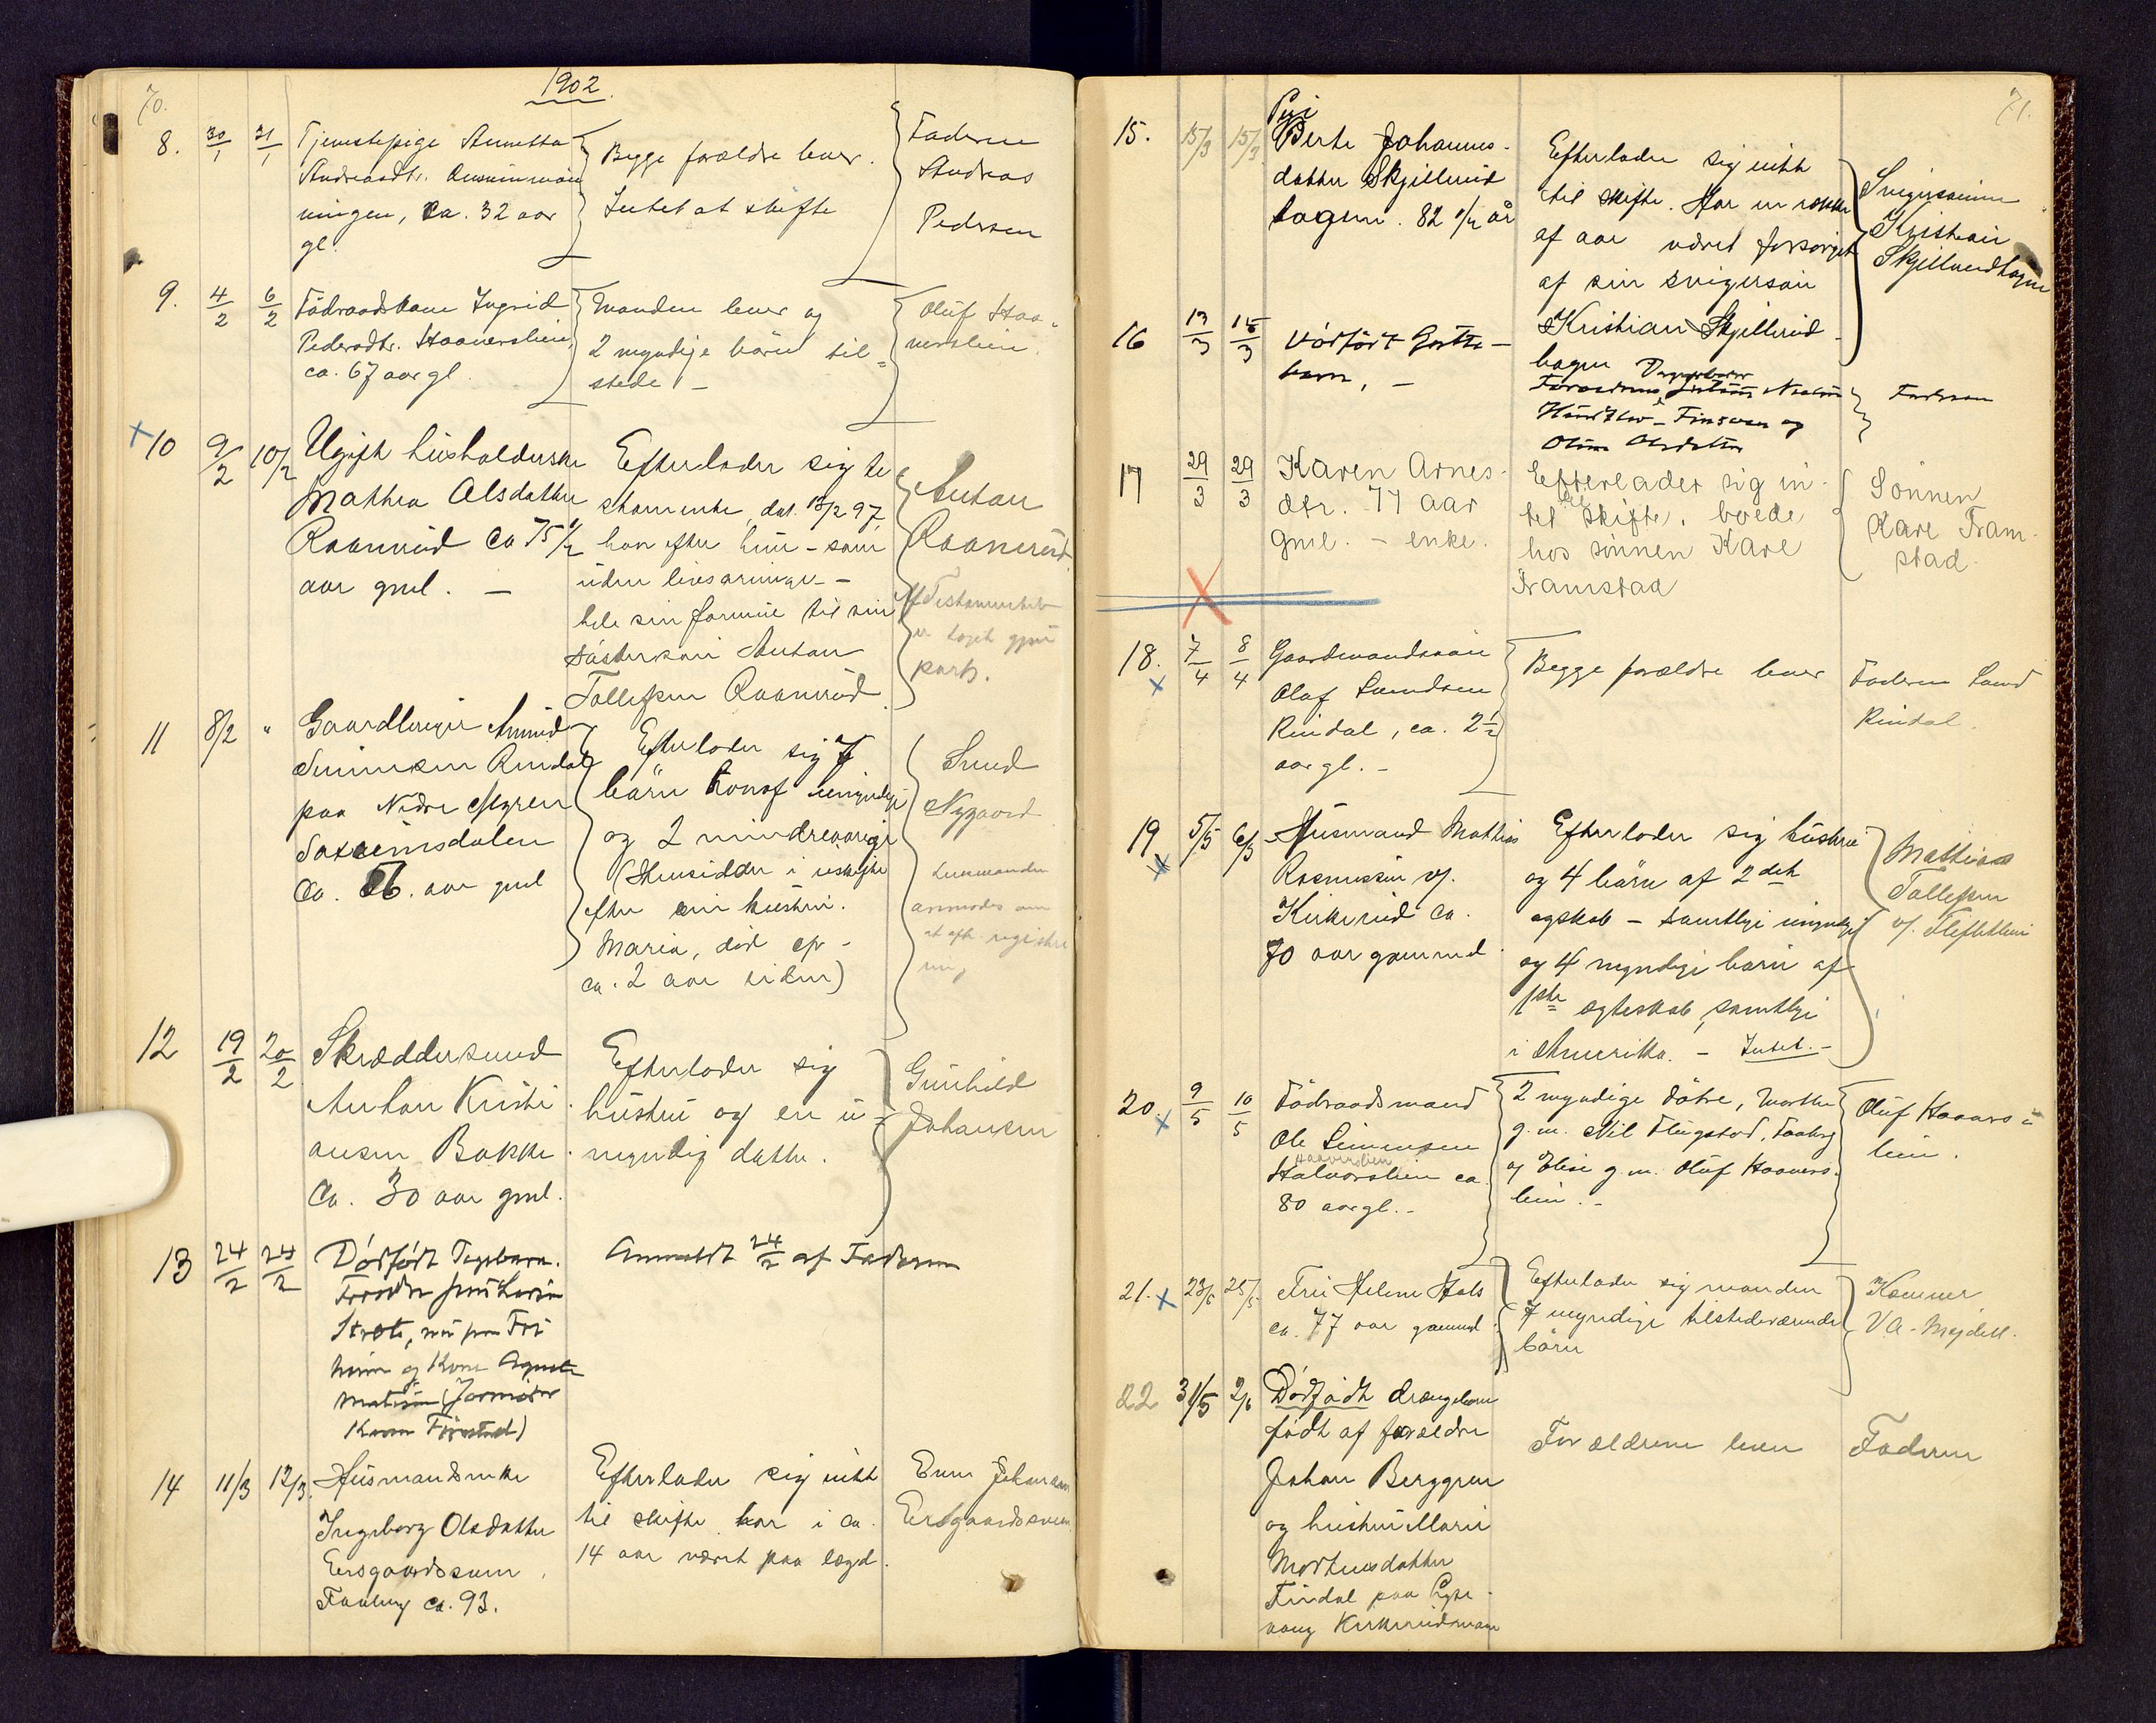 70.
1902
8. 30/1 31/1 Tjenestepige Annetta
Andreasdtr.
ningen, ca. 32 aar
gl.
Begge forældre lever.
Intet at skifte
Faderen
Andreas
Pedersen
9. 4/2 6/2 Födraadskone Ingrid
Pedersdtr. Haaverslien,
ca. 67 aar gl.
Manden lever og
2 myndige börn til=
stede –
Oluf Haa=
verslien.
+ 10 9/2 10/2 Ugift husholderske
Mathea Olsdatter
Raanerud ca 75 1/2
aar gml. –
Efterlader sig te
stamente, dat. 13/2 97,
hvorefter hun – som
uden livsarvinger –
hele sin formue til sin
sösterson Anton
Tollefsen Raanerud.
Anton
Raanerud.
Testamentet
er taget gjen
part.
11 8/2 " Gaardbruger Amund
Simensen Rindal
paa Nedre Myren
Saxumsdalen
ca. 56. aar gml
Efterlader sig 7
börn hvoraf umyndige
og 2 mindreaarige
(Hensidder i uskiftet
efter sin hustru.
Maria, död
ca. 2 aar siden)
Svend
Nygaard
Lensmanden
anmodes om
at registre
ring
12 19/2 20/2 Skræddersvend
Anton Kristi
ansen Bakke.
ca. 30 aar gml.
Efterlader sig
hustru og en u=
myndig datter.
Gunhild
Johansen
13 24/2 24/2 Dödfödt Pigebarn.
Forældre
og Kone Agnete
Anmeldt 24/2 af Faderen
14 11/3 12/3. Husmandsenke
Ingeborg Olsdatter
Ersgaardssveen,
Faaberg ca. 93.
Efterlader sig intet
til skifte har i ca.
14 aar været paa lægd.
Even Johansen
Ersgaardssveen
71.
15. 15/3 15/3 Pige
Berte Johannes-
datter Skjellerud
hagen. 82 1/2 år
Efterlader sig intet
til skifte. Har en række
af aar været forsörget
af sin svigersön
Kristian Skjellerud-
hagen
Svigersönnen
Kristian
Skjellerudhagen
16 13/3 15/3 Dödfödt Gutte-
barn, –
Forældrene
og
Olsdatter
Faderen
17 29/3 29/3 Karen Arnes-
dtr. 77 aar
gml. – enke.
Efterlader sig in-
tet til skifte. boede
hos sönnen Kare
Framstad
Sönnen
Kare Fram-
stad.
18. 7/4 8/4 Gaardmandssön
Olaf Svendsen
Rindal, ca. 2 1/2
aar gl. –
Begge forældre lever
Faderen Svend
Rindal.
19 5/5 6/5 Husmand Mathias
Rasmussen v/.
Kirkerud ca.
70 aar gammel.
Efterlader sig hustru
og 4 börn af 2det
egskab – samtlige umyndige
og 4 myndige börn af
1ste egteskab, samtlige
i Amerika. – Intet. –
Mathias
Tollefsen
v/.
20 9/5 10/5 Födraadsmand
Ole Simensen
Haaverslien
Halvorslien ca.
80 aar gl. –
2 myndige dötre, Marthe
g. m. Nil Flugstad, Faaberg
og Elise g. m. Oluf Haavers-
lien. –
Oluf Haavers=
lien.
21. 23/5 25/5. Fru Helene Hals
ca. 77 aar gammel.
Efterlader sig manden
7 myndige tilstedeværende
börn
V. A. Mejdell.
22 31/5 2/6 Dödfödt drengebarn
födt af forældre
Johan Berggren
og hustru Marie
Mortensdatter
Findal paa
vang
Forældrene lever
Faderen